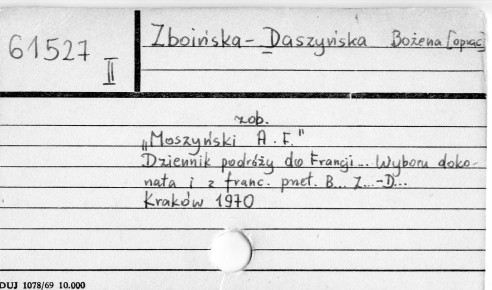 61527
II
Zboińska-Daszyńska Bożena [oprac]
zob.
"Moszyński A. F."
Dziennik podróży do Francji... Wyboru doko-
nała i z franc. przeł. B... Z...-D...
Kraków 1970
DUJ 1078/69 10.000